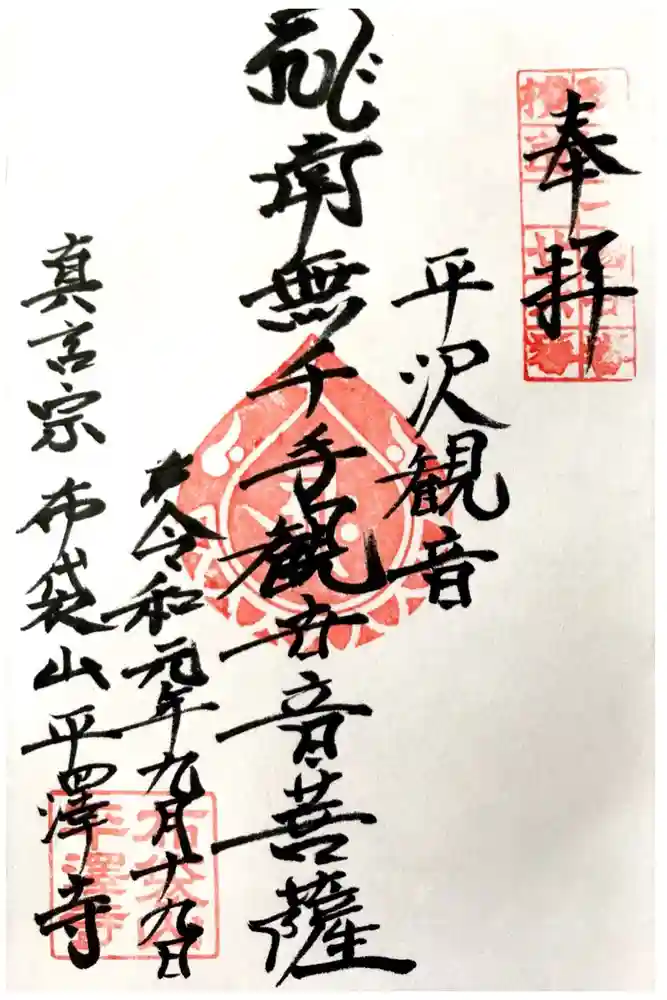 奉拝
平沢観音
南無千手観世音菩薩
令和元年九月十九日
真言宗 布袋山平澤寺
布袋山
平澤寺